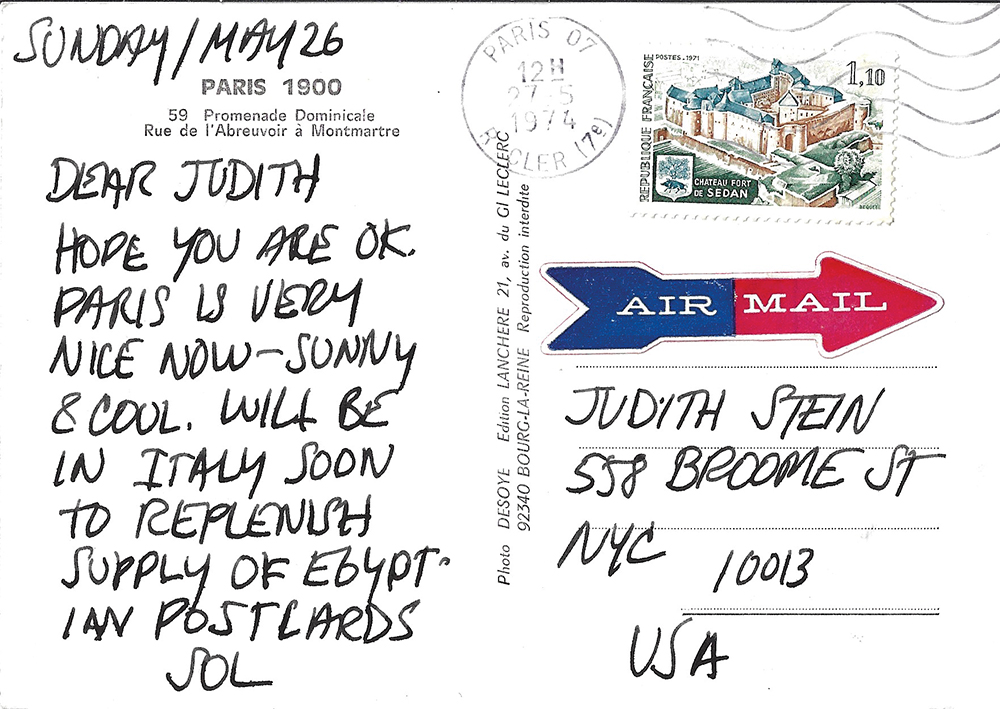 SUNDAY/MAY 26
PARIS 1900
59 Promenade Dominicale
Rue de l'Abreuvoir à Montmartre
DEAR JUDITH
HOPE YOU ARE OK.
PARIS IS VERY
NICE NOW-SUNNY
& COOL. WILL BE
IN ITALY SOON
TO REPLENISH
SUPPLY OF EGYPT-
IAN POSTCARDS
SOL
Photo DESOYE Edition LANCHERE 21, av. du Gl LECLERC
92340 BOURG-LA-REINE Reproduction interdite
PARIS 07
12H
27-5
1974
R. CLER (7e)
REPUBLIQUE FRANÇAISE
POSTES. 1971
1,10
CHATEAU FORT
DE SEDAN
BEQUET
AIR MAIL
JUDITH STEIN
558 BROOME ST
NYC 10013
USA